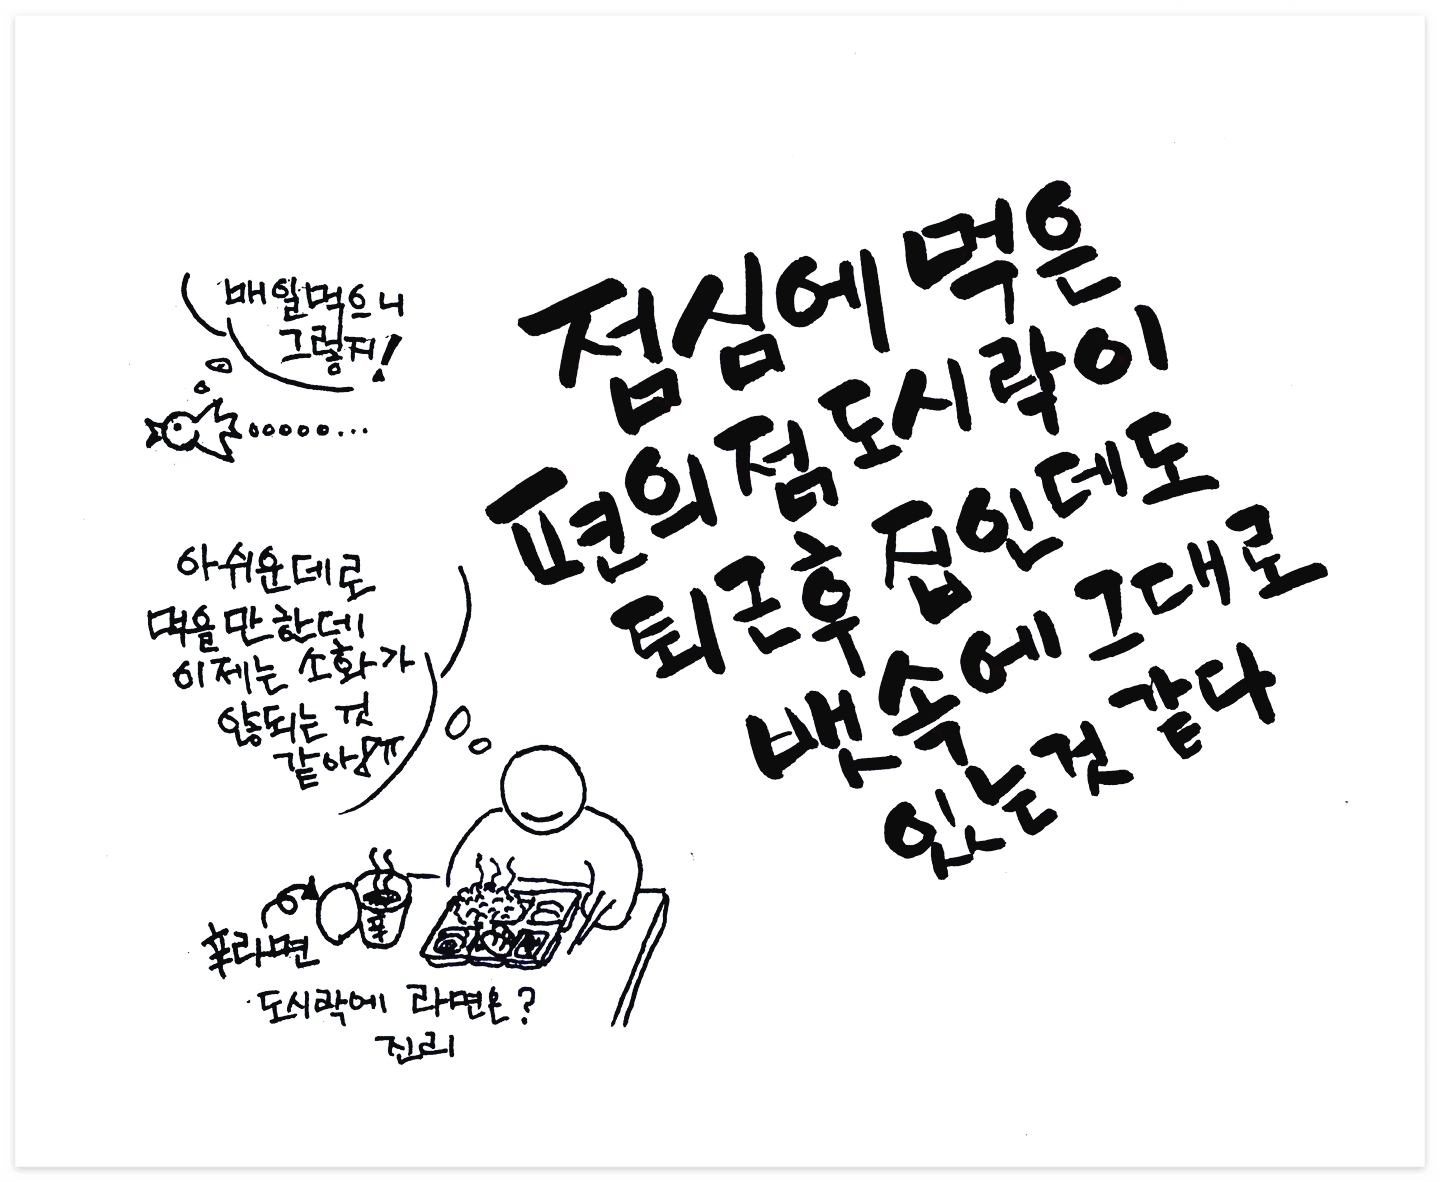 점심에 먹은
편의점 도시락이
퇴근후 집인데도
뱃속에 그대로
있는것 같다
매일먹으니
그렇지!
아쉬운데로
먹을만한데
이제는 소화가
않되는 것
같아ㅠㅠ
辛
辛라면
도시락에 라면은?
진리